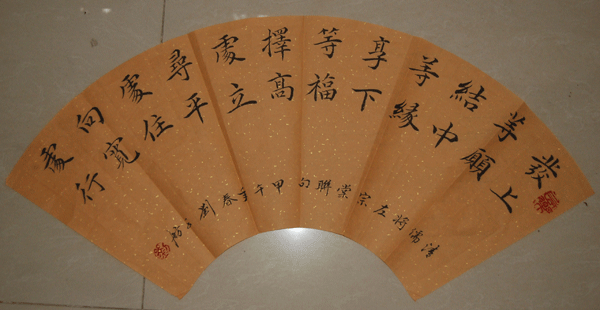 發上
等願
結中
等緣
享下
等福
擇高
處立
尋平
處住
向寬
處行
清儒將左宗棠聯句甲午春劉